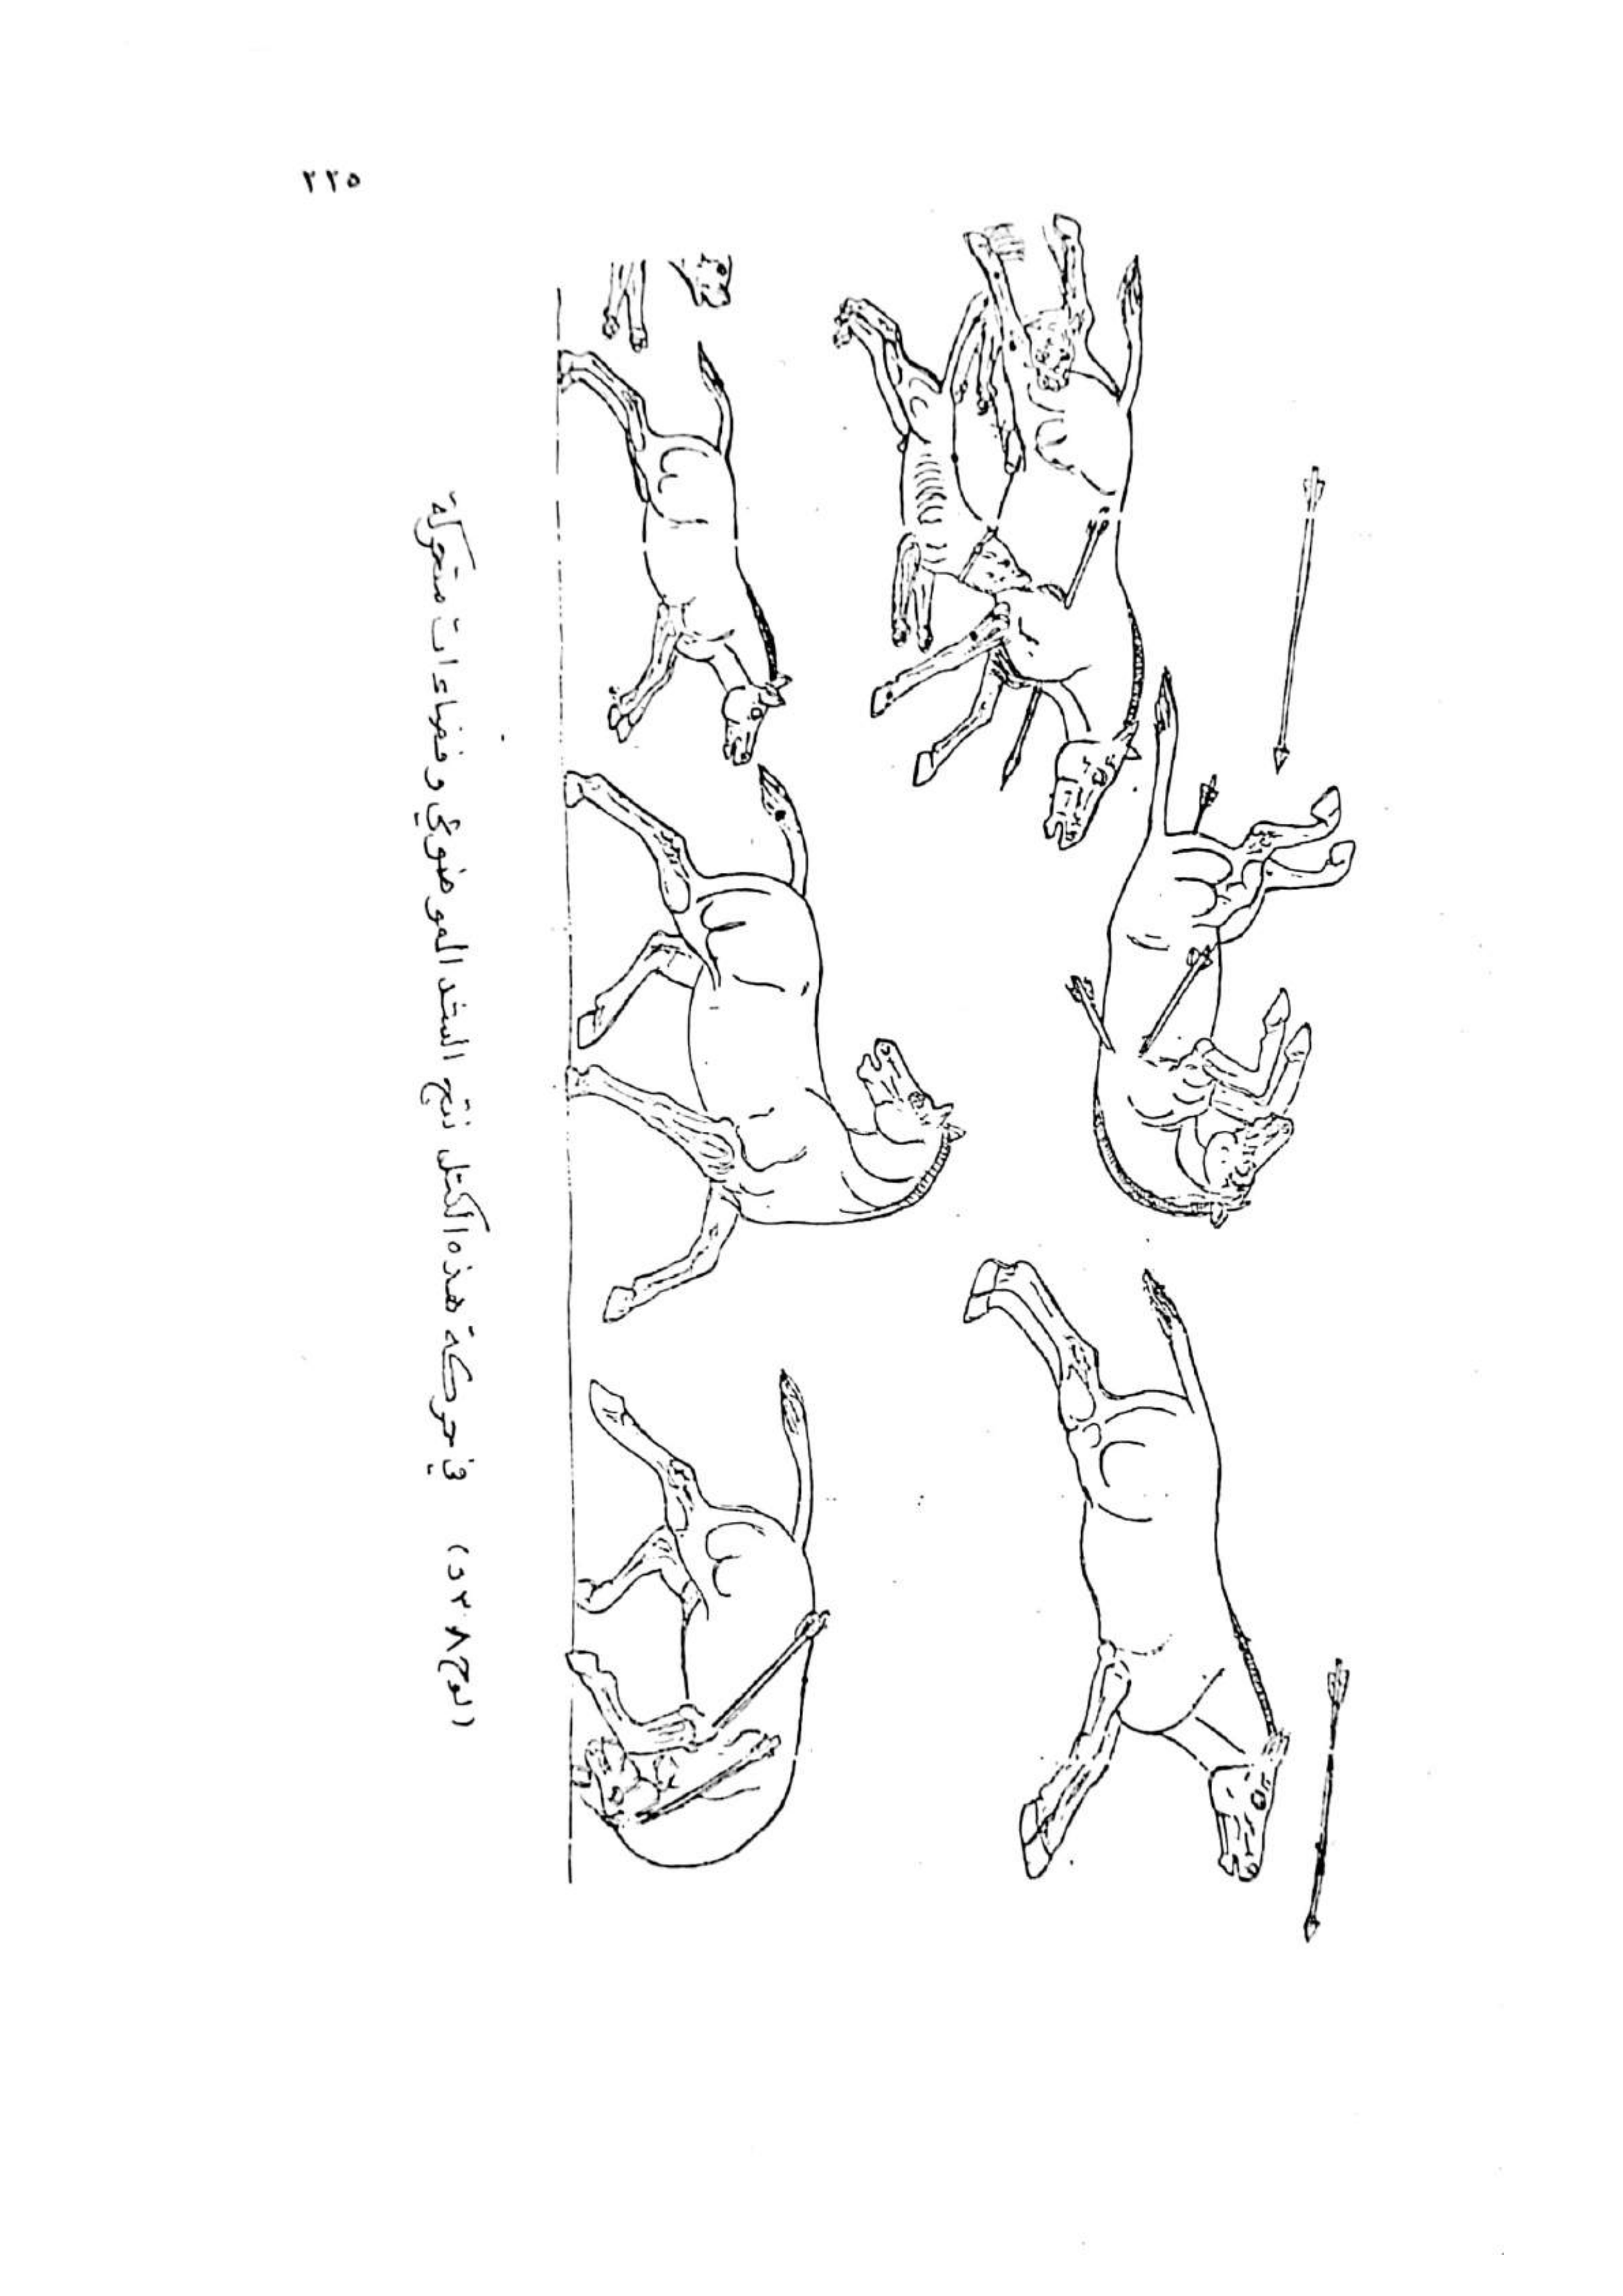 ٢٢٥
(لوح ٣٨ د) في حركة هذه الكتل نتج الشد الموضوعي و فضاءات متحركة